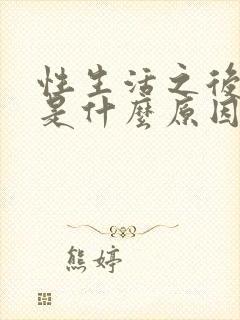 性生活之後
是什麼原因
熊婷